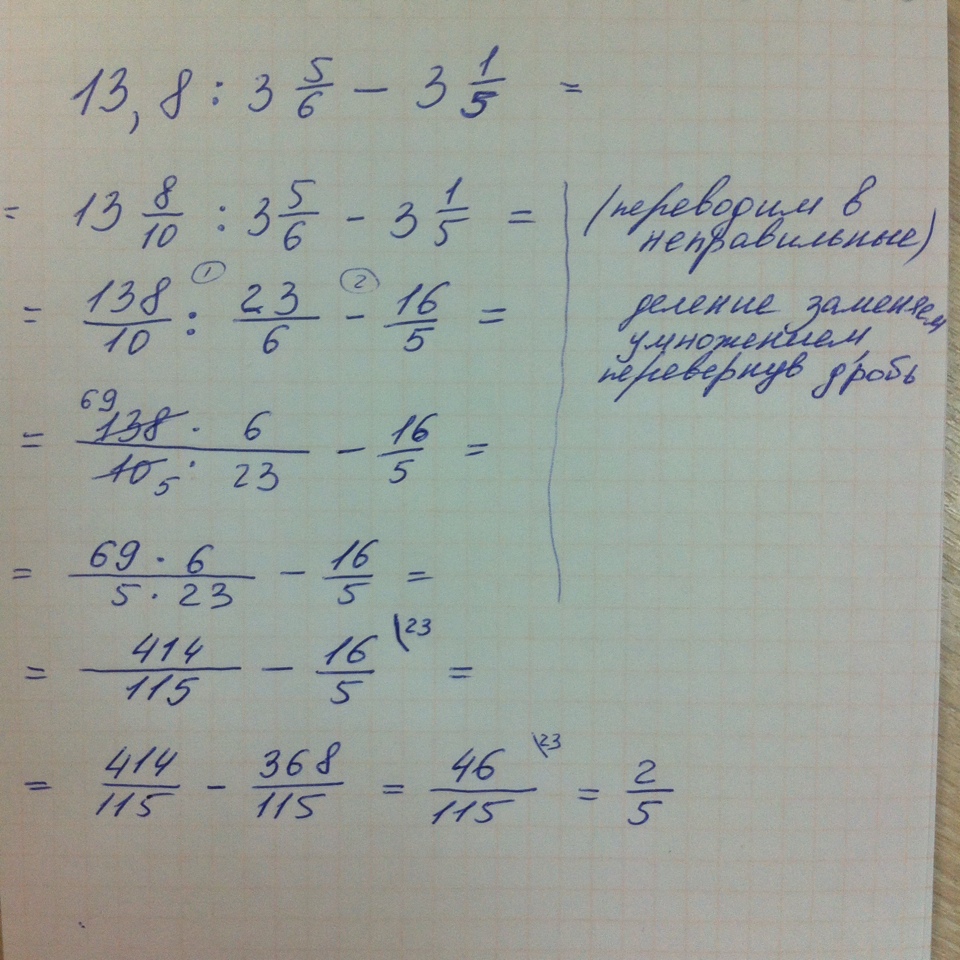 13,8 : 3 5/6 - 3 1/5 =
= 13 8/10 : 3 5/6 - 3 1/5 =
(переводим в
неправильные)
= 138/10 :① 23/6 -② 16/5 =
деление заменяем
умножением
перевернув дробь
= 69 138 · 6 / 10 5 · 23 - 16/5 =
= 69 · 6 / 5 · 23 - 16/5 =
= 414/115 - 16/5 \23 =
= 414/115 - 368/115 = 46/115 \23 = 2/5